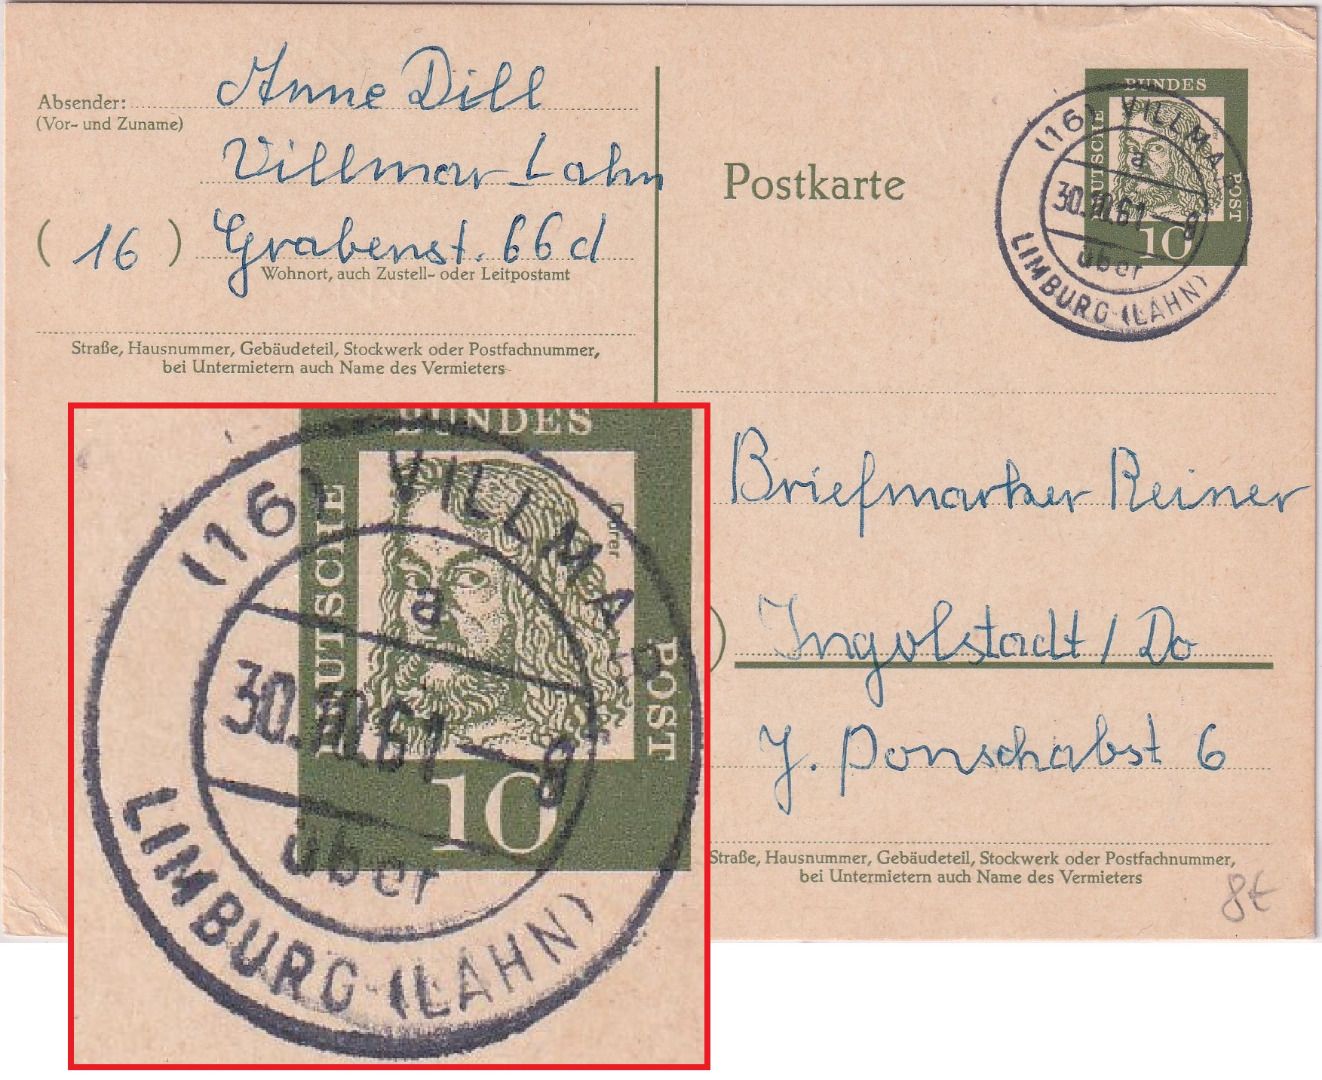 Absender: Anne Dill
(Vor- und Zuname)
Villmar-Lahn
(16) Grabenst. 66d
Wohnort, auch Zustell- oder Leitpostamt
Straße, Hausnummer, Gebäudeteil, Stockwerk oder Postfachnummer,
bei Untermietern auch Name des Vermieters
Postkarte
DEUTSCHE
BUNDES
POST
10
(16) VILLMAR
a
30.10.61 - 8
über
LIMBURG (LAHN)
Briefmarker Reiner
Ingolstadt / Do
J. Ponschabst 6
Straße, Hausnummer, Gebäudeteil, Stockwerk oder Postfachnummer,
bei Untermietern auch Name des Vermieters
8€
BUNDES
DEUTSCHE
POST
Dürer
10
(16) VILLMAR
a
30.10.61 - 8
über
LIMBURG (LAHN)